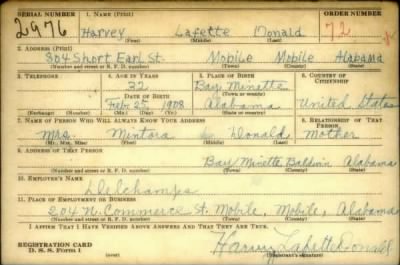 SERIAL NUMBER 1. NAME (Print) ORDER NUMBER
2976 Harvey Lafette Donald 72
(First) (Middle) (Last)
2. ADDRESS (Print)
804 Short Earl St. Mobile Mobile Alabama
(Number and street or R. F. D. number) (Town) (County) (State)
3. TELEPHONE 4. AGE IN YEARS 5. PLACE OF BIRTH 6. COUNTRY OF CITIZENSHIP
32 Bay Minette
DATE OF BIRTH (Town or county)
Feb. 25, 1908 Alabama United States
(Exchange) (Number) (Mo.) (Day) (Yr.) (State or country)
7. NAME OF PERSON WHO WILL ALWAYS KNOW YOUR ADDRESS 8. RELATIONSHIP OF THAT PERSON
Mrs. Mintora Donald Mother
(Mr., Mrs., Miss) (First) (Middle) (Last)
9. ADDRESS OF THAT PERSON
Bay Minette Baldwin Alabama
(Number and street or R. F. D. number) (Town) (County) (State)
10. EMPLOYER'S NAME
Delchamps
11. PLACE OF EMPLOYMENT OR BUSINESS
204 N. Commerce St. Mobile, Mobile, Alabama
(Number and street or R. F. D. number) (Town) (County) (State)
I AFFIRM THAT I HAVE VERIFIED ABOVE ANSWERS AND THAT THEY ARE TRUE.
REGISTRATION CARD
D. S. S. Form 1 (over) Harvey Lafette Donald
(Registrant's signature)